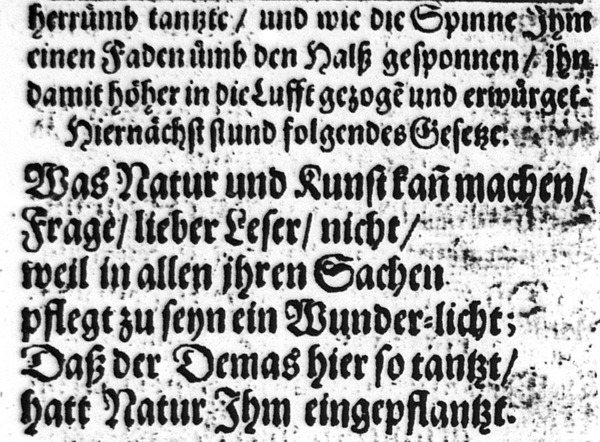 herrümb tantzte / und wie die Spinne Ihm
einen Faden ümb den Halß gesponnen / ihn
damit höher in die Lufft gezogē und erwürget.
Hiernächst stund folgendes Gesetze:
Was Natur und Kunst kañ machen /
Frage / lieber Leser / nicht /
weil in allen jhren Sachen
pflegt zu seyn ein Wunder-licht;
Daß der Demas hier so tantzt /
hatt Natur Ihm eingepflantzt.